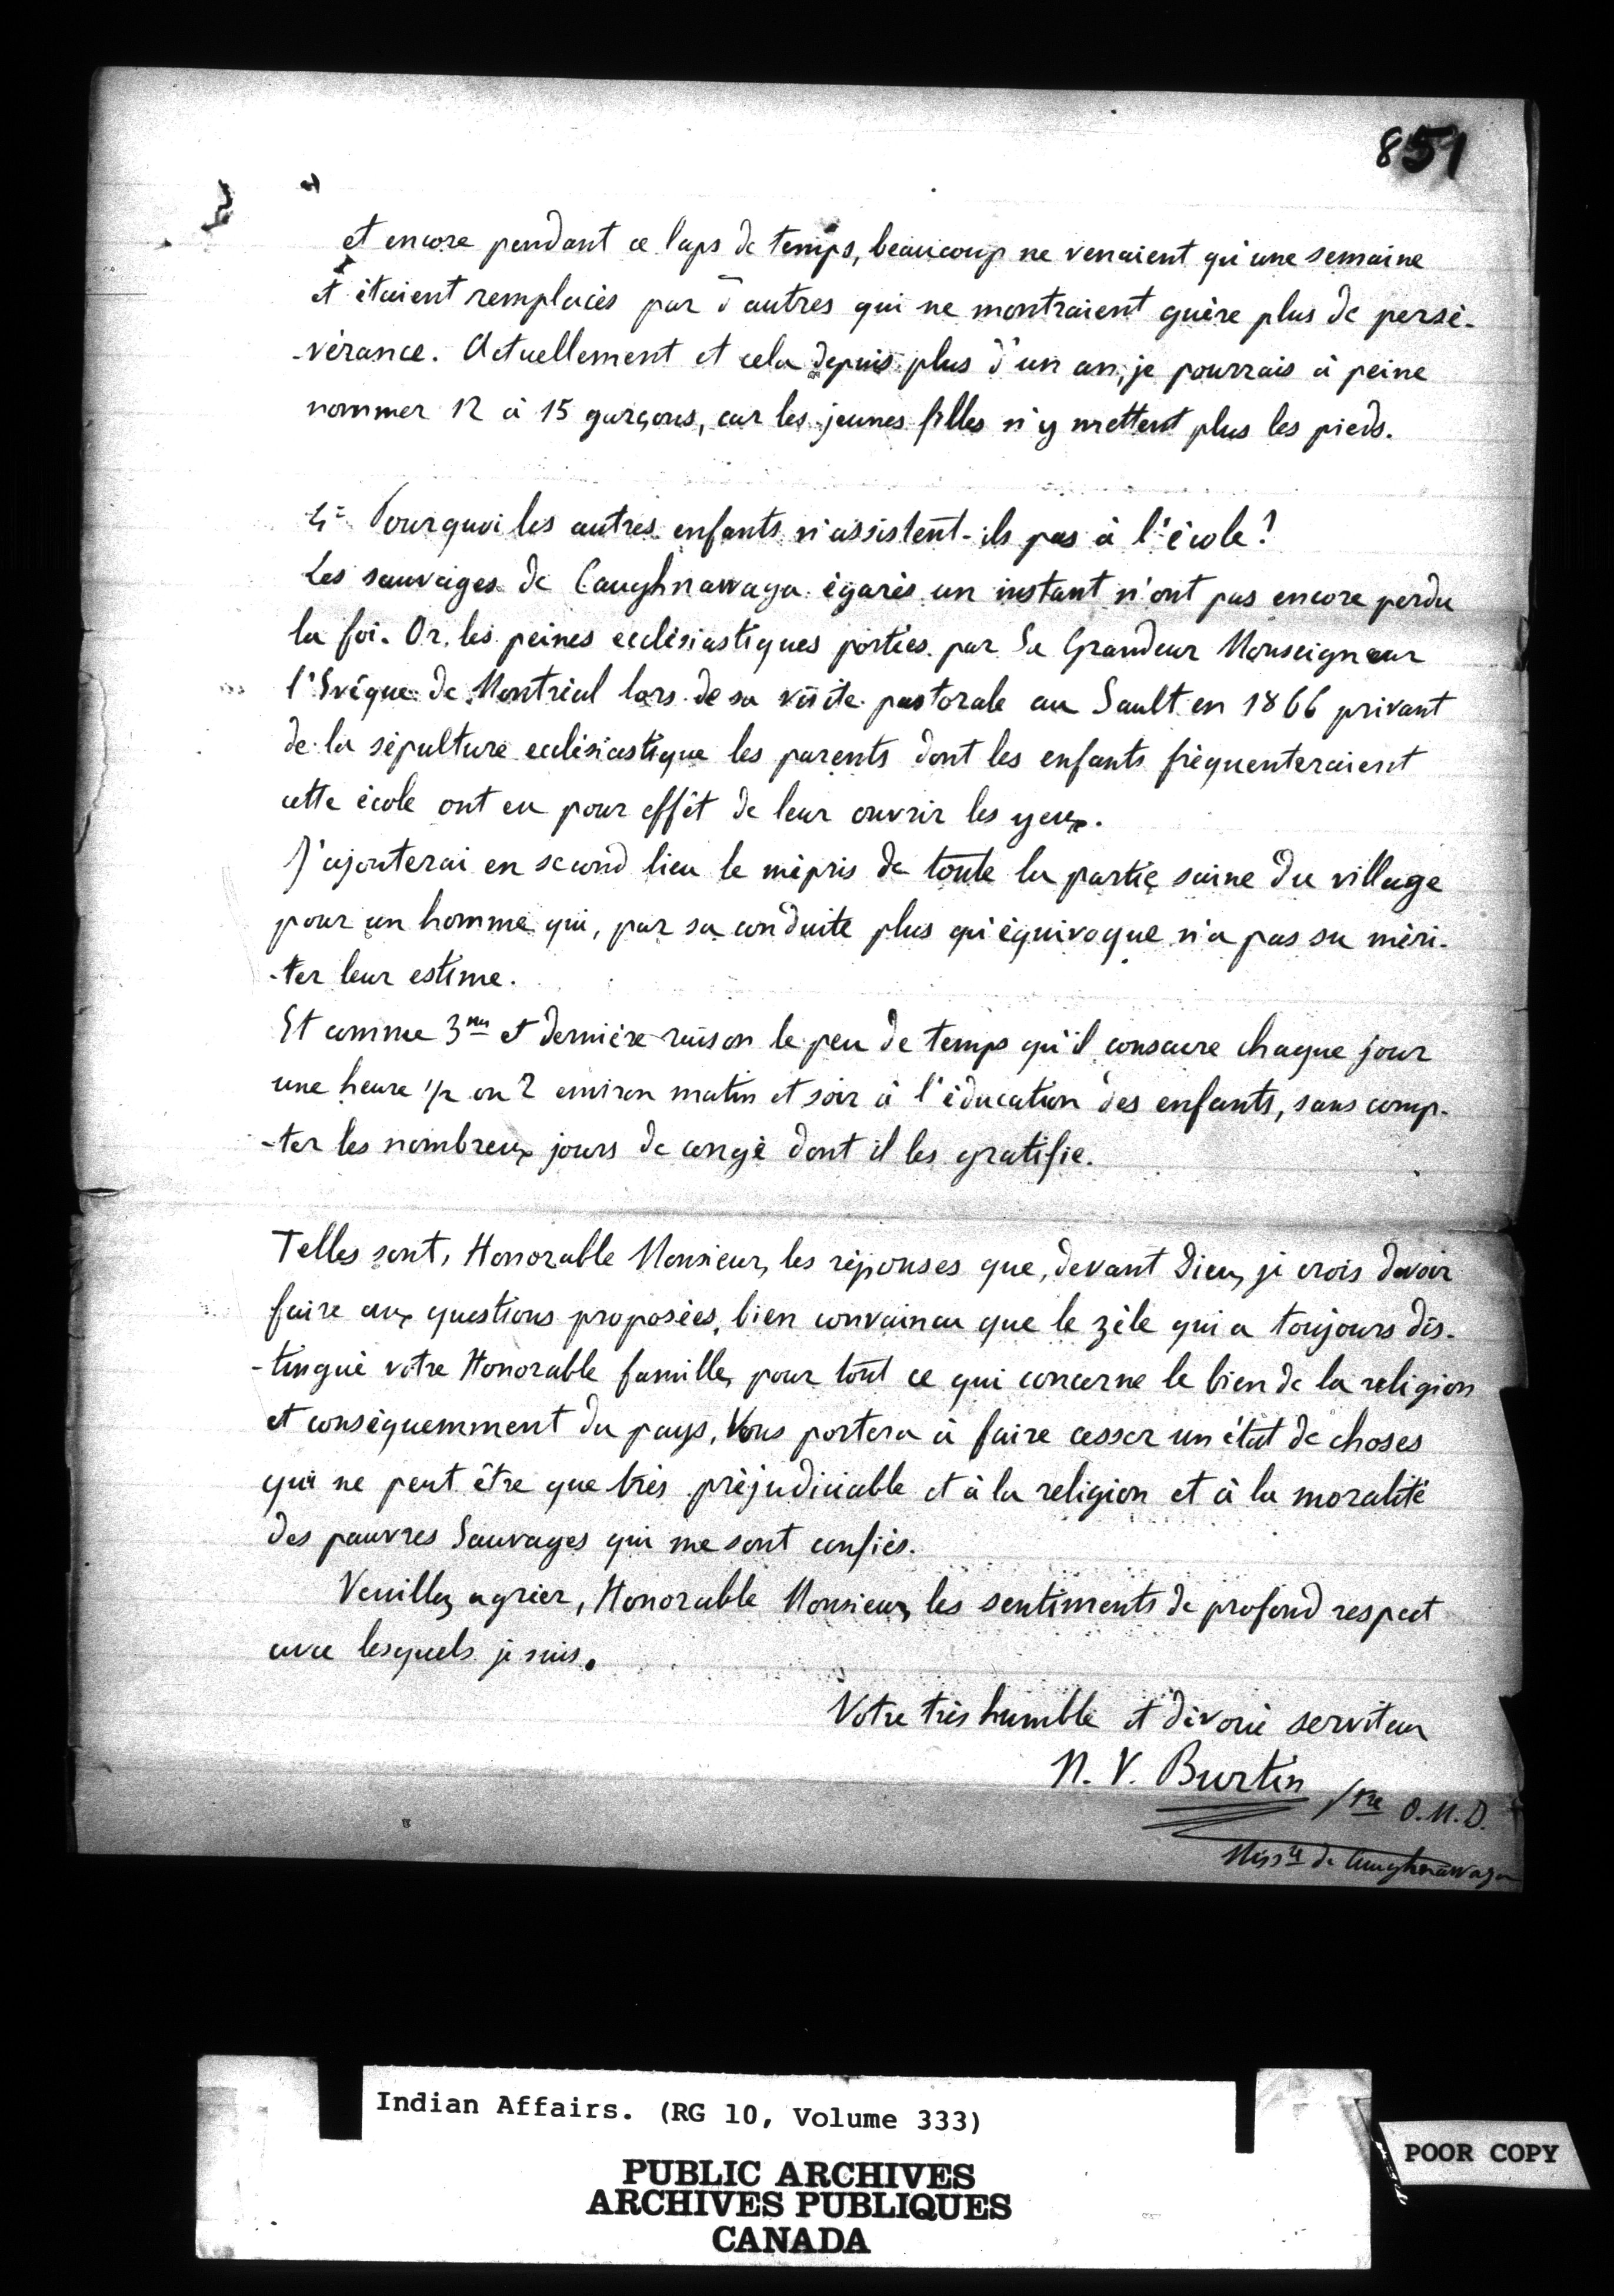 851
et encore pendant ce laps de temps, beaucoup ne venaient qu'une semaine
et étaient remplacés par d'autres qui ne montraient guère plus de persé-
-vérance. Actuellement et cela depuis plus d'un an, je pourrais à peine
nommer 12 à 15 garçons, car les jeunes filles n'y mettent plus les pieds.
4º Pourquoi les autres enfants n'assistent-ils pas à l'école?
Les sauvages de Caughnawaga égarés un instant n'ont pas encore perdu
la foi. Or, les peines ecclésiastiques portées par Sa Grandeur Monseigneur
l'Evêque de Montréal lors de sa visite pastorale au Sault en 1866 privant
de la sépulture ecclésiastique les parents dont les enfants fréquenteraient
cette école ont eu pour effet de leur ouvrir les yeux.
J'ajouterai en second lieu le mépris de toute la partie saine du village
pour un homme qui, par sa conduite plus qu'équivoque n'a pas su méri-
-ter leur estime.
Et comme 3me et dernière raison le peu de temps qu'il consacre chaque jour
une heure 1/2 ou 2 environ matin et soir à l'éducation des enfants, sans comp-
-ter les nombreux jours de congé dont il les gratifie.
Telles sont, Honorable Monsieur, les réponses que, devant Dieu, je crois devoir
faire aux questions proposées, bien convaincu que le zèle qui a toujours dis-
-tingué votre Honorable famille, pour tout ce qui concerne le bien de la religion
et conséquemment du pays, Vous portera à faire cesser un état de choses
qui ne peut être que très préjudiciable et à la religion et à la moralité
des pauvres Sauvages qui me sont confiés.
Veuillez agréer, Honorable Monsieur, les sentiments de profond respect
avec lesquels je suis.
Votre très humble et dévoué serviteur
N. V. Burtin Ptre O.M.I.
Missre de Caughnawaga
Indian Affairs. (RG 10, Volume 333)
PUBLIC ARCHIVES
ARCHIVES PUBLIQUES
CANADA
POOR COPY